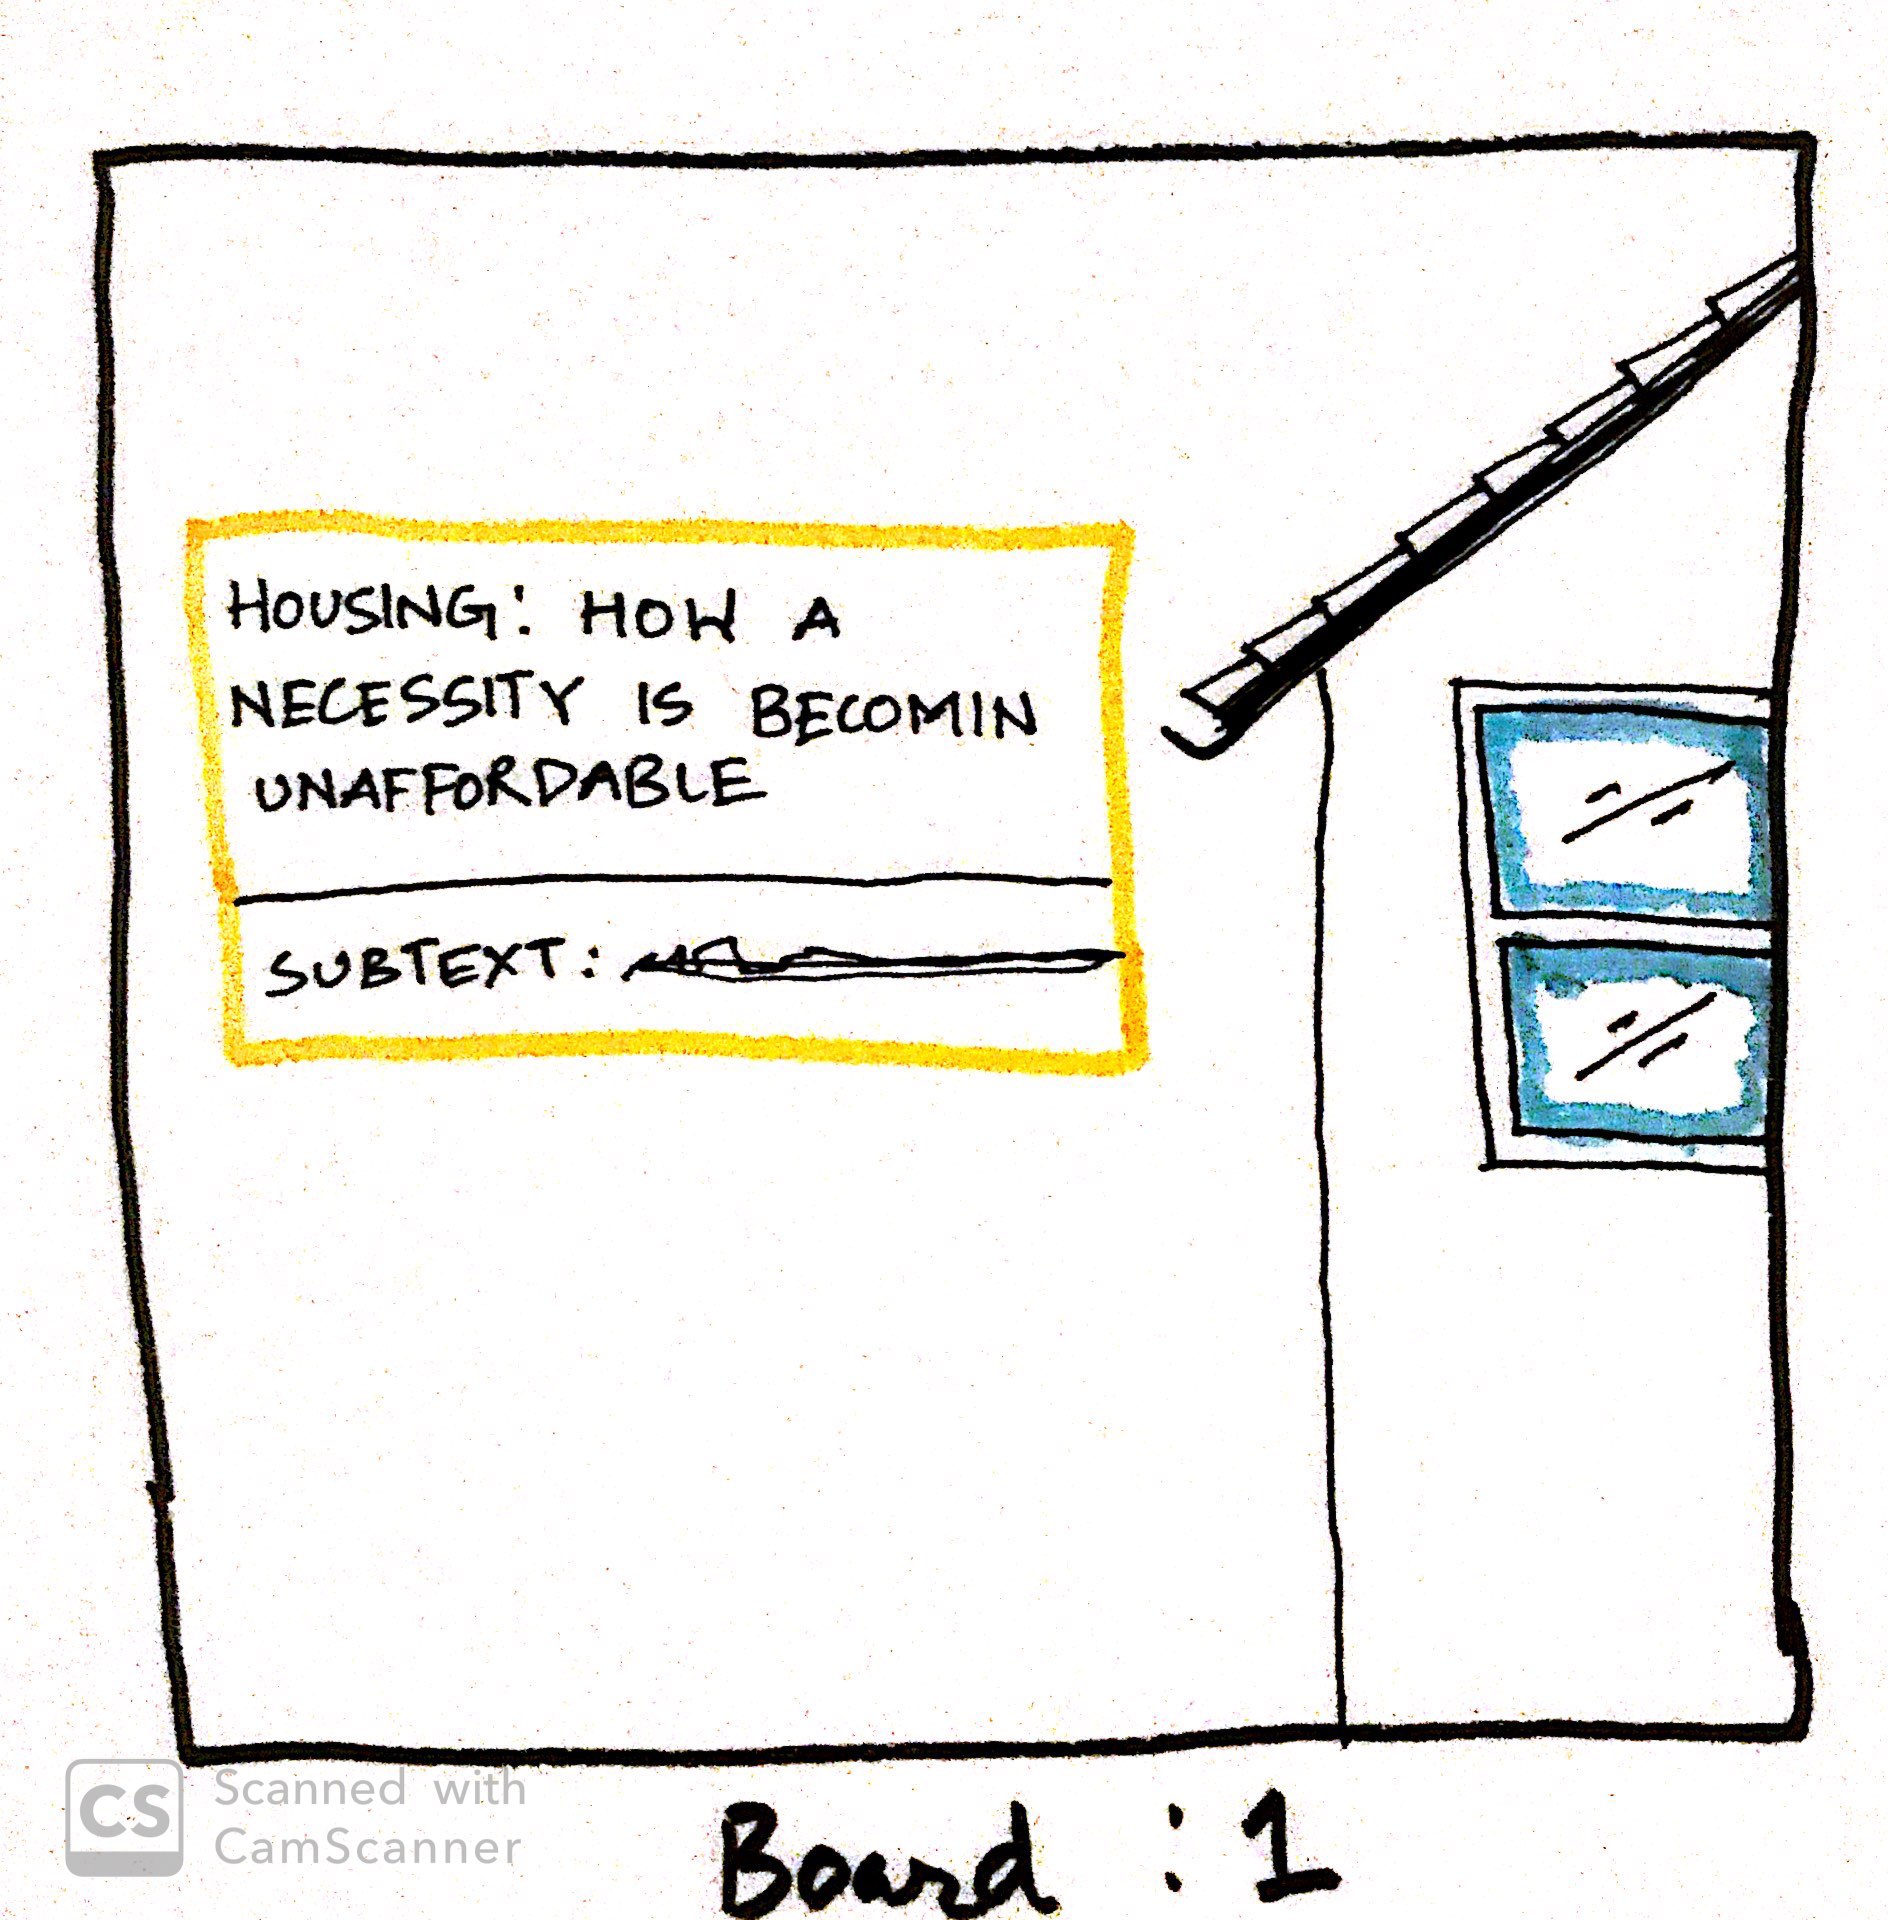 HOUSING: HOW A
NECESSITY IS BECOMIN
UNAFFORDABLE
SUBTEXT:
CS Scanned with
CamScanner
Board : 1